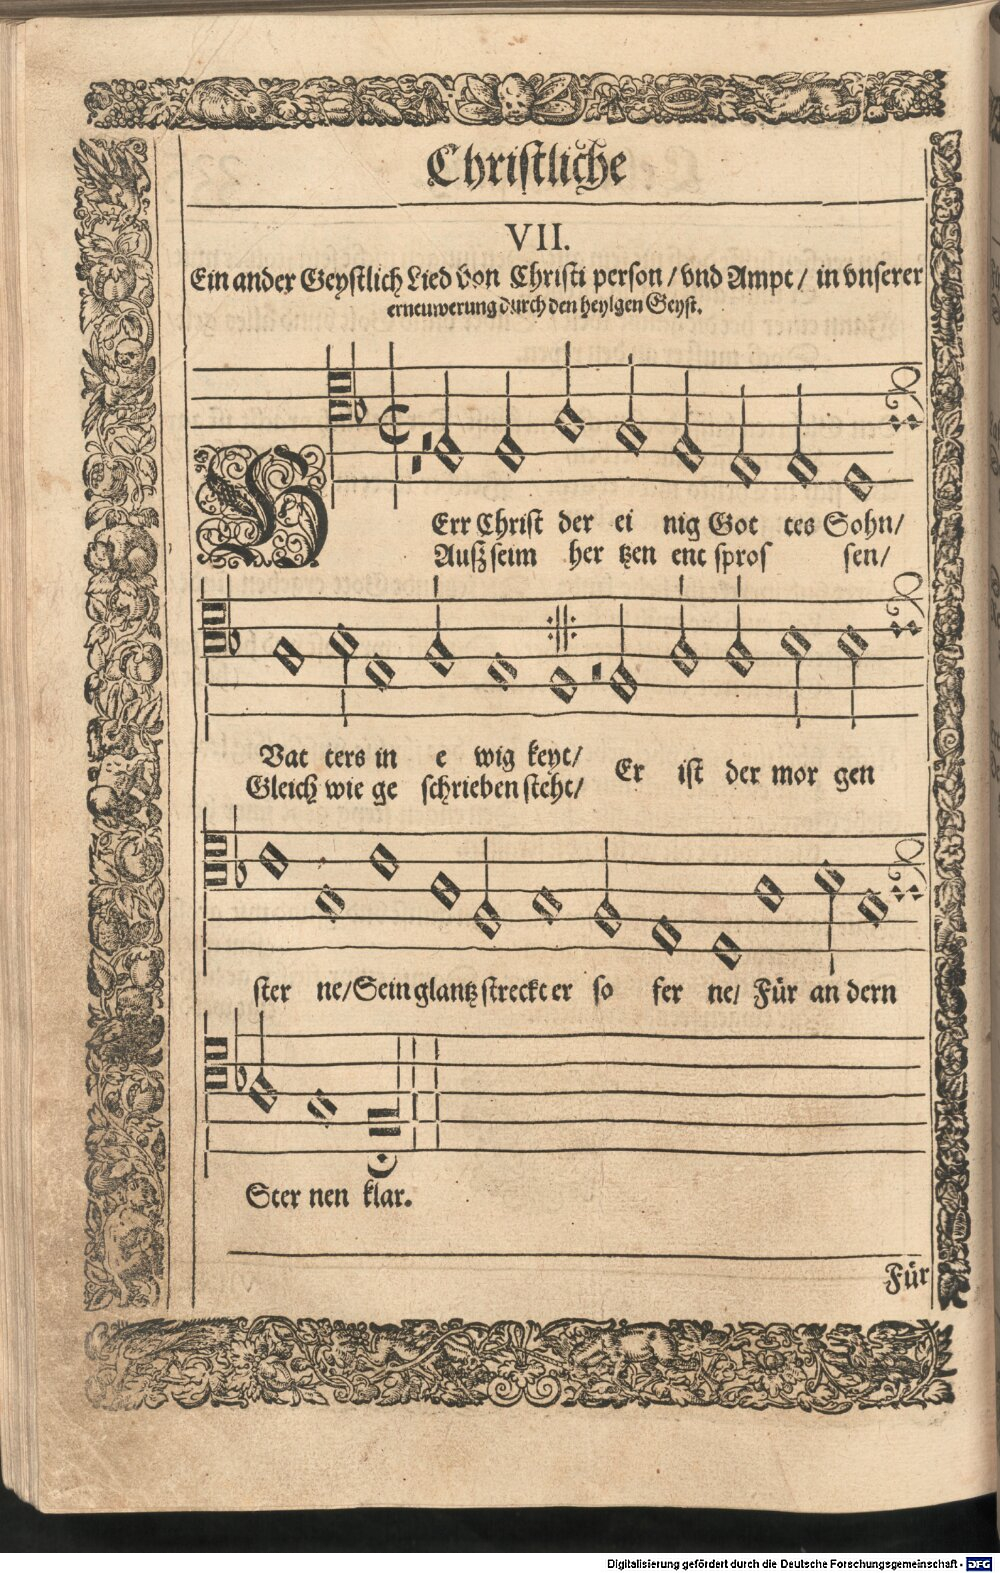 Christliche
VII.
Ein ander Geystlich Lied von Christi person / vnd Ampt / in vnserer
erneuwerung durch den heylgen Geyst.
HErr Christ der ei nig Got tes Sohn/
Außseim her tzen ent spros sen/
Vat ters in e wig keyt/ Er ist der mor gen
Gleich wie ge schrieben steht/
ster ne/Sein glantz streckt er so fer ne/ Für an dern
Ster nen klar.
Für
Digitalisierung gefördert durch die Deutsche Forschungsgemeinschaft - DFG